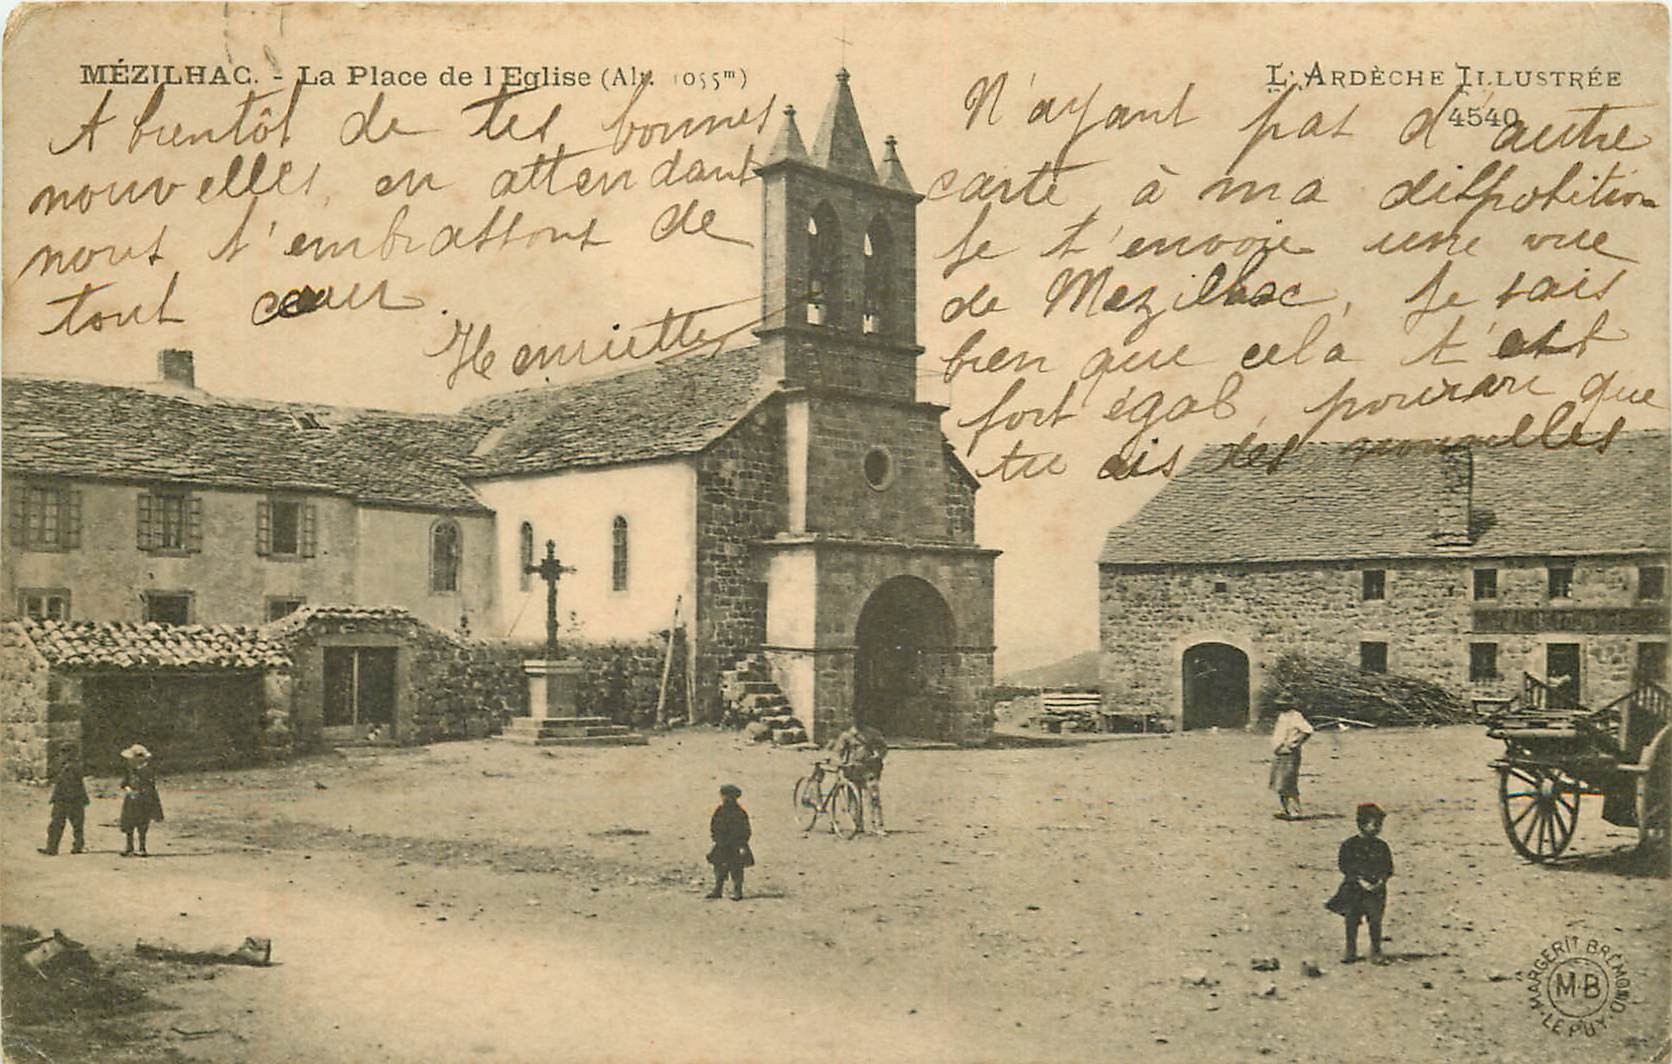 MÉZILHAC. - La Place de l'Eglise (Alt. 1055m)
L'ARDÈCHE ILLUSTRÉE
4540
A bientôt de tes bonnes
nouvelles, en attendant
nous t'embrassons de
tout cœur.
Henriette
N'ayant pas d'autre
carte à ma disposition
Je t'envoie une vue
de Mezilhac, Je sais
bien que cela t'est
fort égal, pourvu que
tu ais des nouvelles
MARGERIT BRÉMOND
M·B
LE PUY